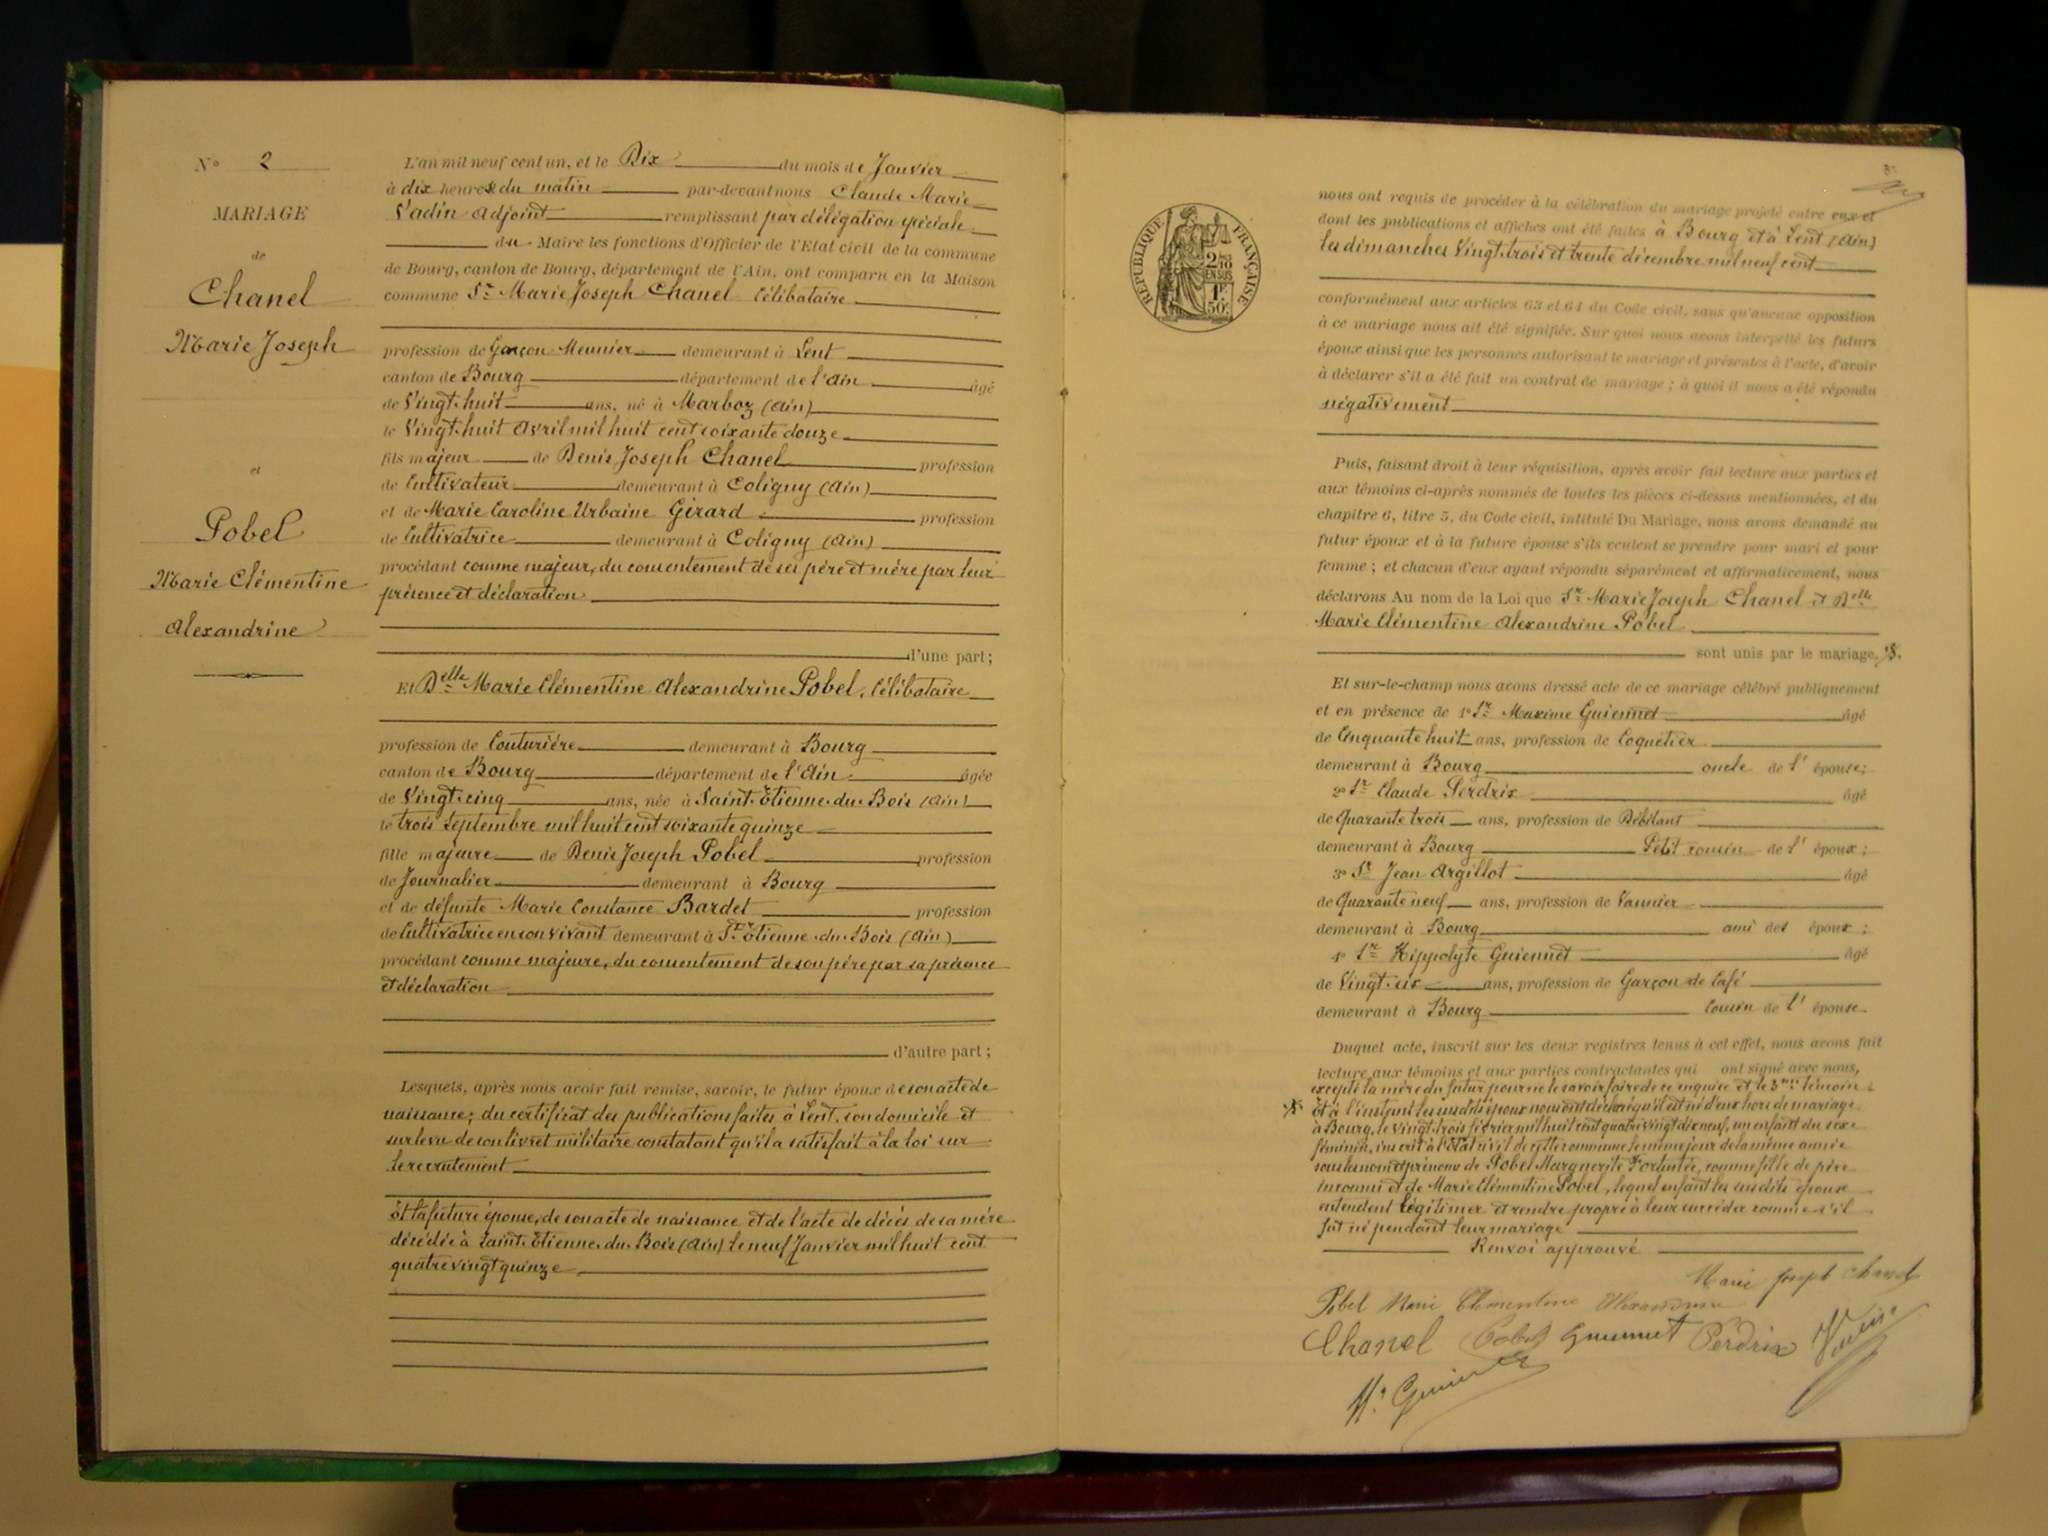 N° 2
MARIAGE
de
Chanel
Marie Joseph
et
Pobel
Marie Clémentine
Alexandrine
L'an mil neuf cent un, et le Dix du mois de Janvier
à dix heures du matin par-devant nous Claude Marie
Vadin Adjoint remplissant par délégation spéciale
du Maire les fonctions d'Officier de l'Etat civil de la commune
de Bourg, canton de Bourg, département de l'Ain, ont comparu en la Maison
commune Sr Marie Joseph Chanel Célibataire
profession de Garçon Meunier demeurant à Lent
canton de Bourg département de l'Ain âgé
de Vingt-huit ans, né à Marboz (Ain)
le Vingt-huit Avril mil huit cent soixante douze
fils majeur de Denis Joseph Chanel profession
de Cultivateur demeurant à Coligny (Ain)
et de Marie Caroline Urbaine Girard profession
de Cultivatrice demeurant à Coligny (Ain)
procédant comme majeur, du consentement de ses père et mère par leur
présence et déclaration
d'une part;
Et Delle Marie Clémentine Alexandrine Pobel, Célibataire
profession de Couturière demeurant à Bourg
canton de Bourg département de l'Ain âgée
de Vingt-cinq ans, née à Saint-Etienne-du-Bois (Ain)
le trois Septembre mil huit cent soixante quinze
fille majeure de Denis Joseph Pobel profession
de Journalier demeurant à Bourg
et de défunte Marie Constance Bardet profession
de Cultivatrice en son vivant demeurant à St Etienne-du-Bois (Ain)
procédant comme majeure, du consentement de son père par sa présence
et déclaration
d'autre part;
Lesquels, après nous avoir fait remise, savoir, le futur époux de son acte de
naissance; du certificat des publications faites à Lent, son domicile et
sur le vu de son livret militaire constatant qu'il a satisfait à la loi sur
le recrutement
Et la future épouse, de son acte de naissance et de l'acte de décès de sa mère
décédée à Saint-Etienne-du-Bois (Ain) le neuf Janvier mil huit cent
quatre vingt quinze
RÉPUBLIQUE FRANÇAISE
2/10
EN SUS
1F
50c
nous ont requis de procéder à la célébration du mariage projeté entre eux et
dont les publications et affiches ont été faites à Bourg et à Lent (Ain)
les dimanches Vingt-trois et trente décembre mil neuf cent
conformément aux articles 63 et 64 du Code civil, sans qu'aucune opposition
à ce mariage nous ait été signifiée. Sur quoi nous avons interpellé les futurs
époux ainsi que les personnes autorisant le mariage et présentes à l'acte, d'avoir
à déclarer s'il a été fait un contrat de mariage; à quoi il nous a été répondu
négativement
Puis, faisant droit à leur réquisition, après avoir fait lecture aux parties et
aux témoins ci-après nommés de toutes les pièces ci-dessus mentionnées, et du
chapitre 6, titre 5, du Code civil, intitulé Du Mariage, nous avons demandé au
futur époux et à la future épouse s'ils veulent se prendre pour mari et pour
femme; et chacun d'eux ayant répondu séparément et affirmativement, nous
déclarons Au nom de la Loi que Sr Marie Joseph Chanel et Delle
Marie Clémentine Alexandrine Pobel
sont unis par le mariage.
Et sur-le-champ nous avons dressé acte de ce mariage célébré publiquement
et en présence de 1° Sr Maxime Guiennet âgé
de Cinquante huit ans, profession de Coquetier
demeurant à Bourg oncle de l' épouse;
2° Sr Claude Perdrix âgé
de Quarante trois ans, profession de Débitant
demeurant à Bourg Petit cousin de l' époux;
3° Sr Jean Argillot âgé
de Quarante neuf ans, profession de Vannier
demeurant à Bourg ami des époux;
4° Sr Hippolyte Guiennet âgé
de Vingt-six ans, profession de Garçon de Café
demeurant à Bourg Cousin de l' épouse
Duquel acte, inscrit sur les deux registres tenus à cet effet, nous avons fait
lecture aux témoins et aux parties contractantes qui ont signé avec nous,
excepté la mère du futur pour ne le savoir faire de ce enquise et le 3me témoin
Et à l'instant les susdits époux nous ont déclaré qu'il est né d'eux hors de mariage
à Bourg, le vingt-trois février mil huit cent quatre vingt dix neuf, un enfant du sexe
féminin, inscrit à l'Etat civil de cette commune le même jour de la même année
sous les nom et prénoms de Pobel Marguerite Fortunée, comme fille de père
inconnu et de Marie Clémentine Pobel, lequel enfant les susdits époux
entendent légitimer et rendre propre à leur succéder comme s'il
fût né pendant leur mariage
Renvoi approuvé
Marie Joseph Chanel
Pobel Marie Clémentine Alexandrine
Chanel Pobel Guiennet Perdrix Vadin